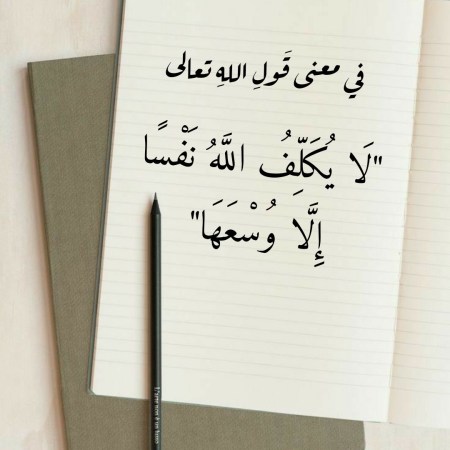 في معنى قَولِ اللهِ تعالى
"لَا يُكَلِّفُ اللَّهُ نَفْسًا
إِلَّا وُسْعَهَا"